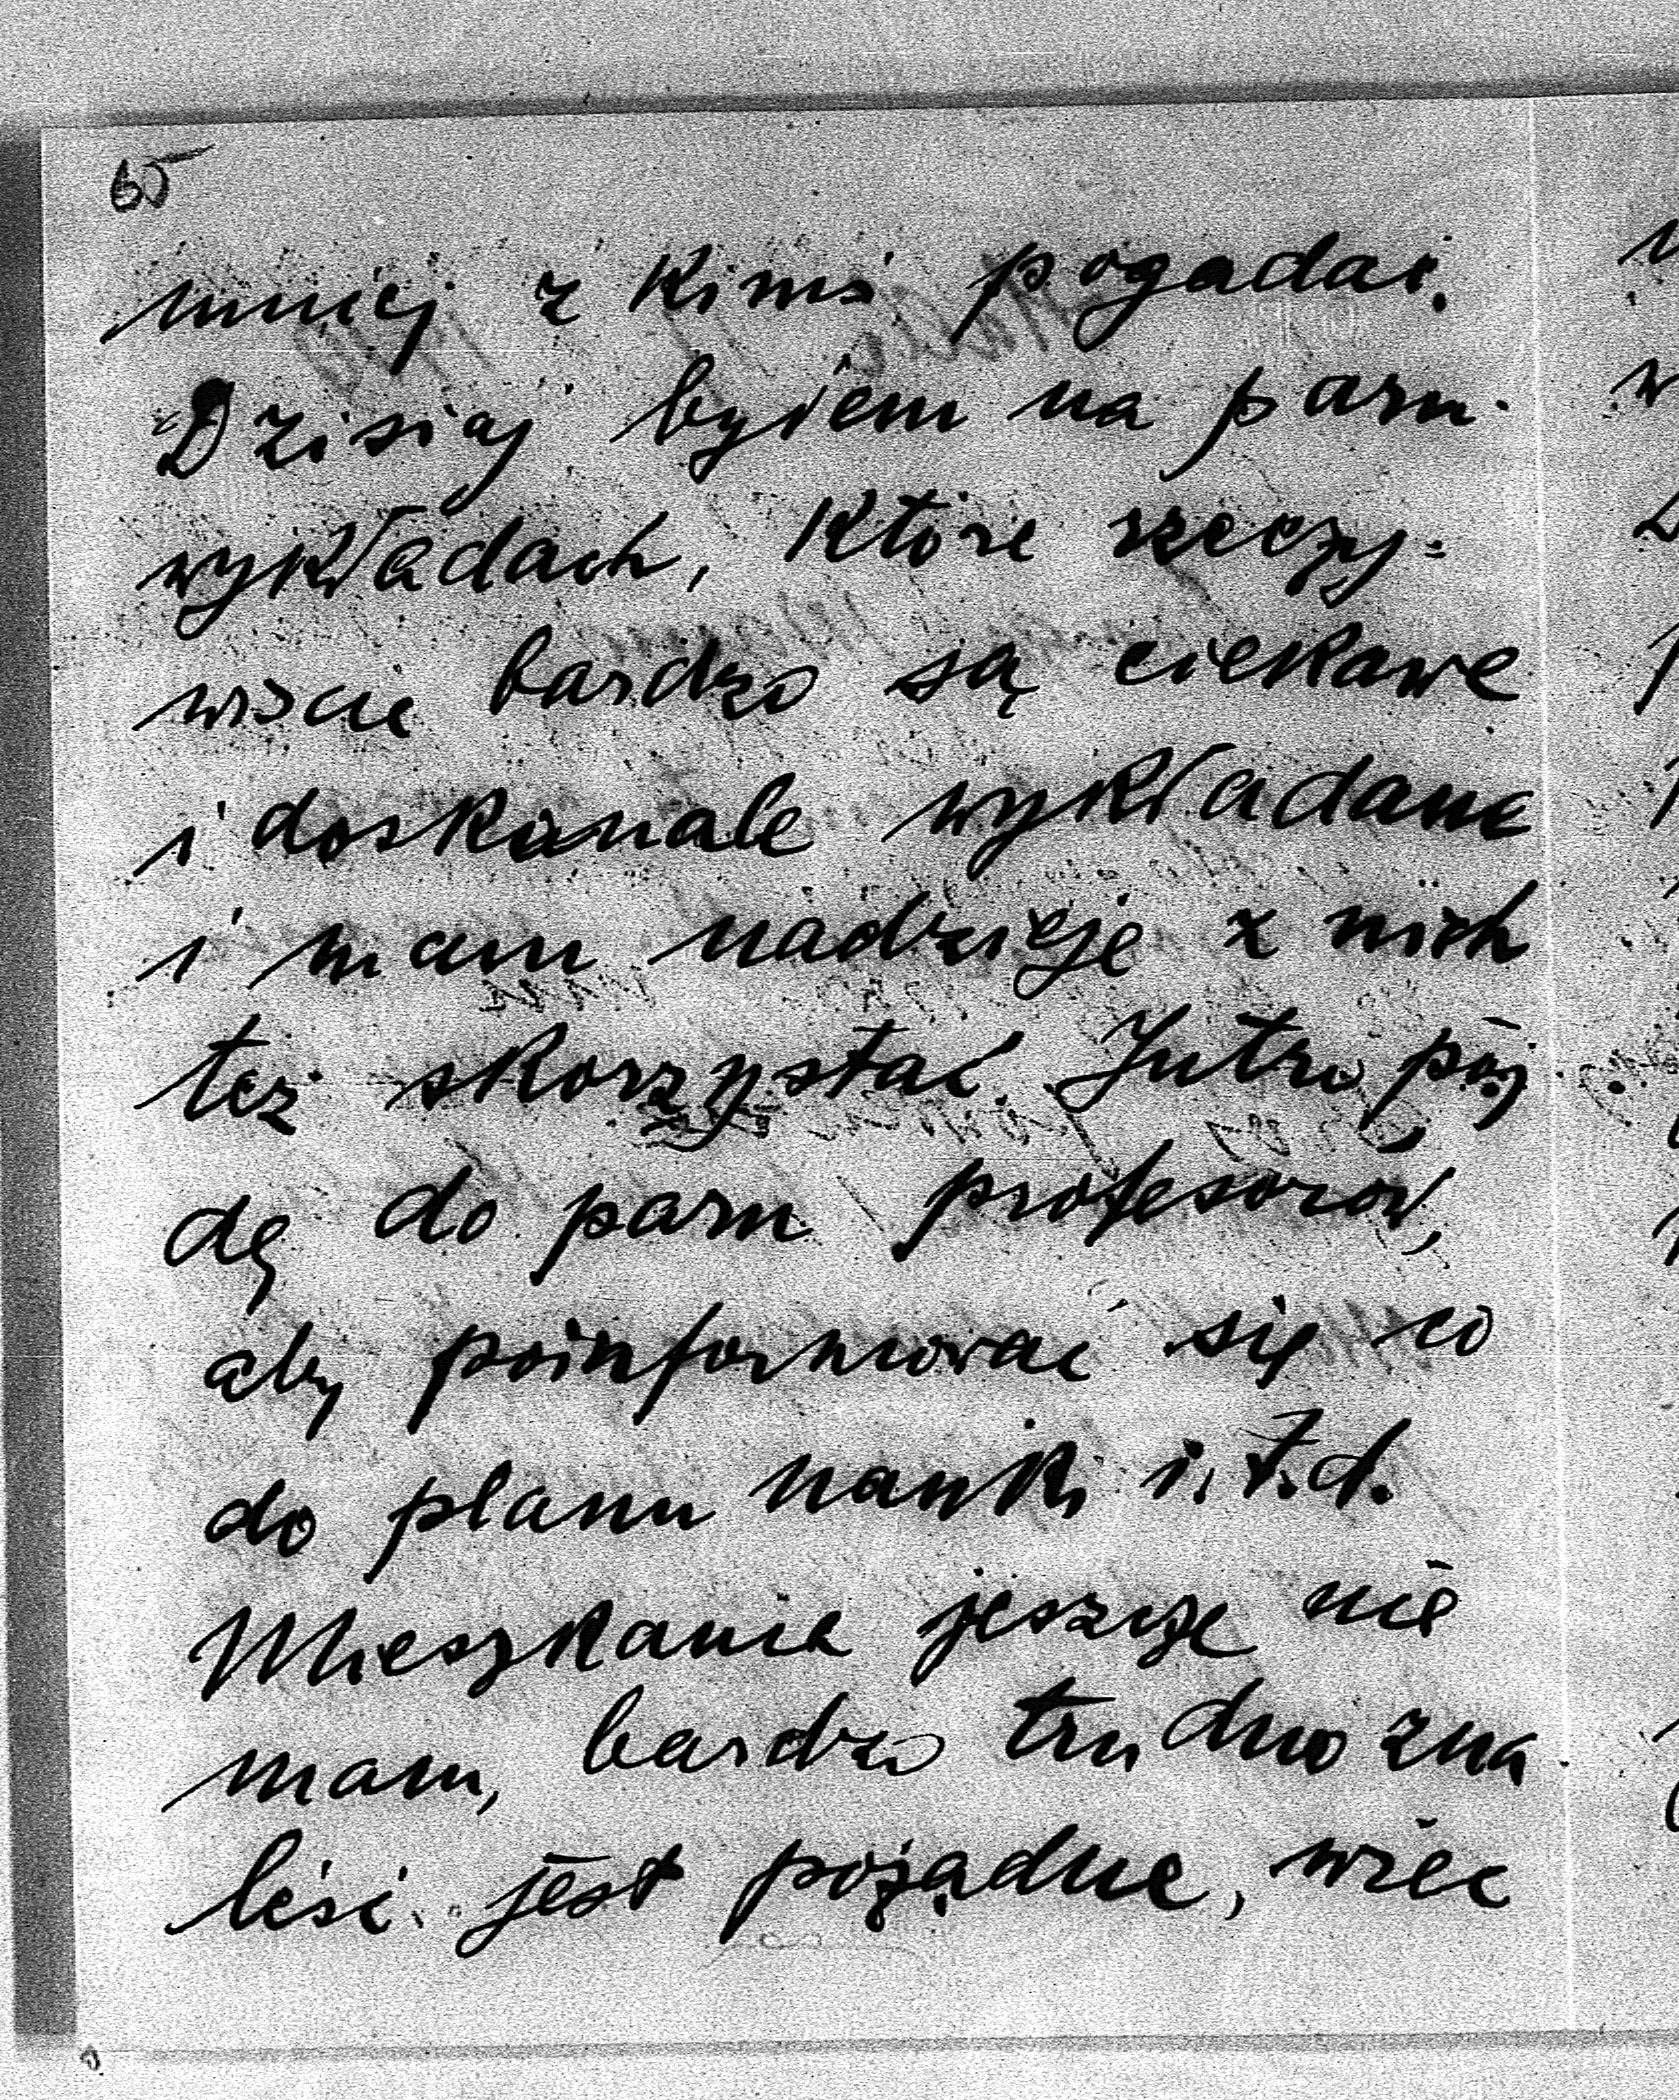 65
mniej z kimś pogadać.
Dzisiaj byłem na paru
wykładach, które rzeczy=
wiście bardzo są ciekawe
i doskonale wykładane
i mam nadzieję z nich
też skorzystać. Jutro pój
dę do paru profesorów,
aby poinformować się co
do planu nauki i.t.d.
Mieszkania jeszcze nie
mam, bardzo trudno zna
leść jest porządne, więc